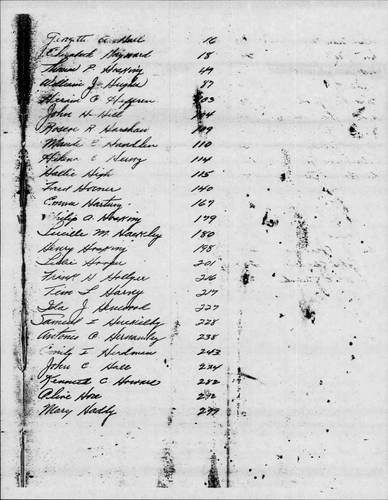 Forsyth A Hall 16
Elizabeth Hayward 18
Thomas P. Hosking 49
William J. Hughes 87
Hiram C. 103
John H. Hill 104
Roscoe R. Harshaw 109
Maude E Hamblin 110
Helena C Henry 114
Hallie High 115
Fred Horner 140
Emma Hartung 167
Philip A. Hosking 179
Lucille M. Hawkley 180
Henry Hosking 198
Hooper 201
Frank H 216
Tim L Harvey 217
Iola J. 227
Samuel E 228
Antonio A Hernandez 238
Emily E Herdman 243
John C Hall 274
Kenneth C Howard 282
Aline Hoe 292
Mary Hally 299